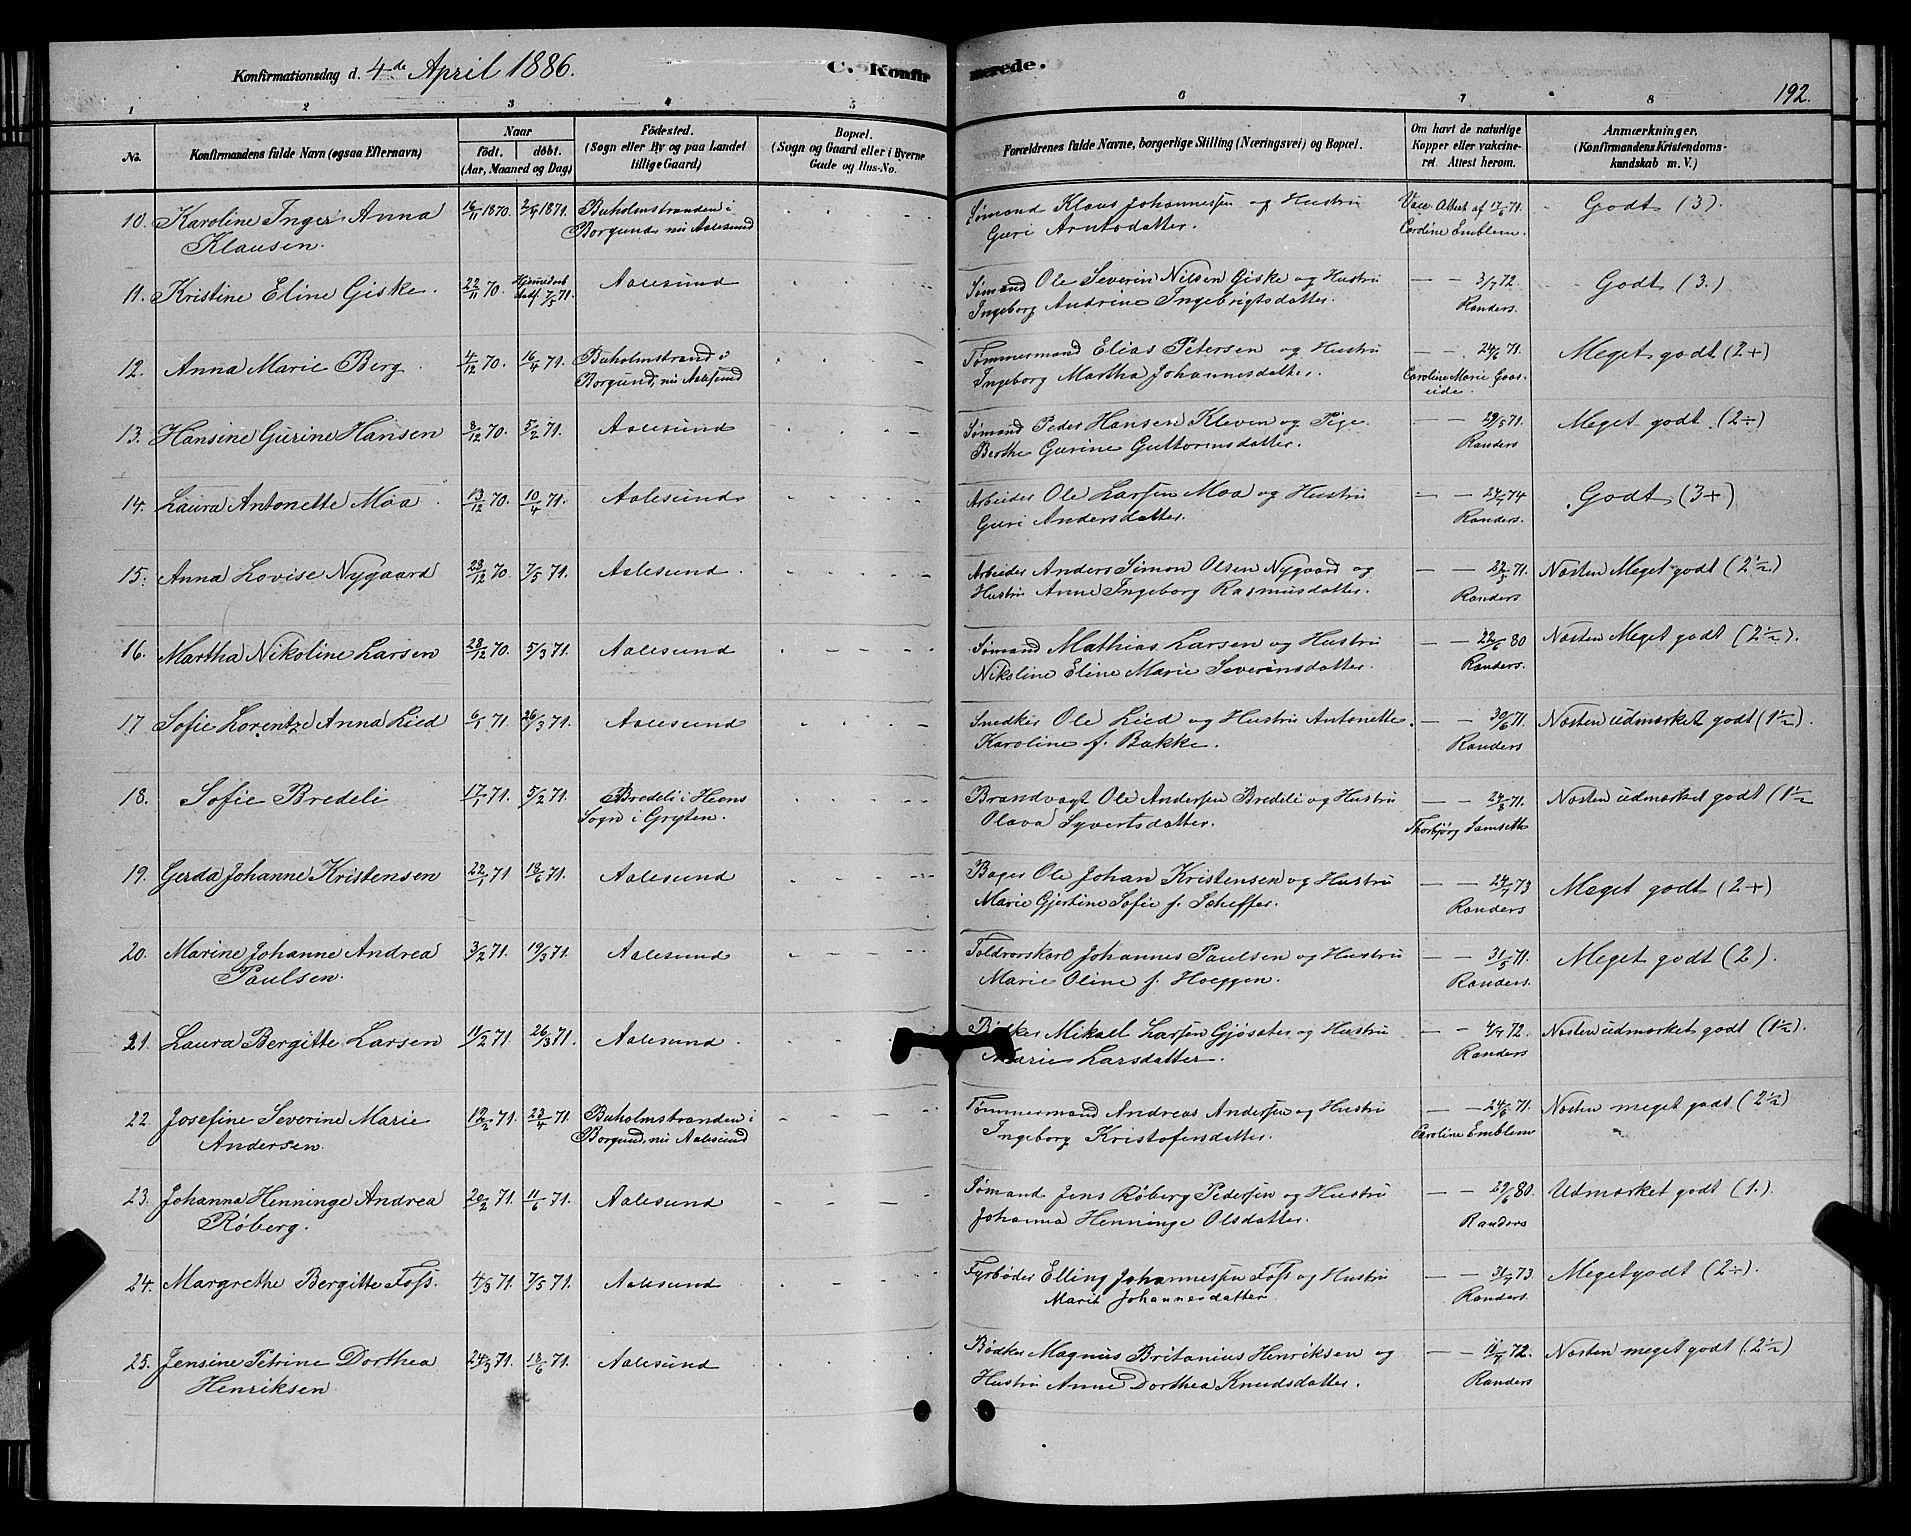 Konfirmationsdag d. 4de April 1886.
C. Konfirmerede.
192.
1 2 3 4 5 6 7 8
No.
Konfirmandens fulde Navn (ogsaa Efternavn)
Naar
födt. döbt.
(Aar, Maaned og Dag)
Födested.
(Sogn eller By og paa Landet
tillige Gaard)
Bopæl.
(Sogn og Gaard eller i Byerne
Gade og Hus-No.
Forældrenes fulde Navne, borgerlige Stilling (Næringsvei) og Bopæl.
Om havt de naturlige
Kopper eller vakcine-
ret. Attest herom.
Anmærkninger.
(Konfirmandens Kristendoms-
kundskab m. V.)
10. Karoline Inger Anna 16/11 1870. 2/4 1871. Buholmstranden i Sømand Klaus Johannessen og Hustru Vacc. Attest af 17/6 71. Godt (3).
Klausen. Borgund, nu Aalesund Guri Arntsdatter. Caroline Emblem.
11. Kristine Eline Giske. 22/11 70. Hjemmedøb stadf. 7/5 71. Aalesund Sømand Ole Severin Nilsen Giske og Hustru — — 3/7 72. Godt (3.)
Ingeborg Andrine Ingebrigtsdatter. Randers.
12. Anna Marie Berg 4/12 70. 16/4 71. Buholmstrand i Tømmermand Elias Petersen og Hustru — — 24/6 71. Meget godt (2+)
Borgund, nu Aalesund Ingeborg Martha Johannesdatter. Caroline Marie Gaas-
eide.
13. Hansine Gurine Hansen 8/12 70. 5/2 71. Aalesund Sømand Peder Hansen Kleven og Pige — — 29/5 71. Meget godt (2÷)
Berthe Gurine Guttormsdatter. Randers
14. Laura Antonette Moa 13/12 70. 10/4 71. Aalesund Arbeider Ole Larsen Moa og Hustru — — 24/7 74 Godt (3+)
Guri Andersdatter. Randers.
15. Anna Lovise Nygaard 23/12 70 7/5 71. Aalesund Arbeider Anders Simon Olsen Nygaard og — — 22/5 71. Næsten Meget godt (2½)
Hustru Anne Ingeborg Rasmusdatter. Randers
16. Martha Nikoline Larsen 28/12 70. 5/3 71. Aalesund Sømand Mathias Larsen og Hustru — — 22/6 80 Næsten Meget godt (2½).
Nikoline Eline Marie Severinsdatter. Randers.
17 Sofie Lorentze Anna Lied 6/1 71. 26/3 71. Aalesund Snedker Ole Lied og Hustru Antonette — — 30/6 71. Næsten udmærket godt (1½).
Karoline f. Bakke. Randers
18. Sofie Bredeli 17/1 71. 5/2 71. Bredeli i Heens Brandvagt Ole Andersen Bredeli og Hustru — — 24/8 71. Næsten udmærket godt (1½
Sogn i Gryten. Olava Syvertsdatter. Thorbjørg Samseth
19. Gerda Johanne Kristensen 22/1 71 18/6 71. Aalesund Bager Ole Johan Kristensen og Hustru — — 24/7 73 Meget godt (2+)
Marie Gjertine Sofie f. Scheffer. Randers
20. Marine Johanne Andrea 3/2 71. 19/3 71. Aalesund Toldrorskarl Johannes Paulsen og Hustru — — 31/5 71. Meget godt (2).
Paulsen. Marie Oline f. Hoeggen. Randers.
21. Laura Bergitte Larsen 11/2 71. 26/3 71. Aalesund Bødker Mikael Larsen Gjøsater og Hustru — — 4/7 72. Næsten udmærket godt (1½).
Marie Larsdatter. Randers
22 Josefine Severine Marie 19/2 71. 23/4 71. Buholmstranden i Tømmermand Andreas Andersen og Hustru — — 24/6 71. Næsten meget godt (2½)
Andersen. Borgund, nu Aalesund Ingeborg Kristofersdatter. Caroline Emblem
23. Johanna Henninge Andrea 20/2 71. 11/6 71. Aalesund Sømand Jens Røberg Pedersen og Hustru — — 29/6 80. Udmærket godt (1.)
Røberg. Johanna Henninge Olsdatter. Randers
24. Margrethe Bergitte Foss. 4/3 71. 7/5 71. Aalesund Fyrbøder Elling Johannessen Foss og Hustru — — 31/7 73 Meget godt (2÷).
Marit Johannesdatter Randers.
25. Jensine Petrine Dorthea 24/3 71. 18/6 71. Aalesund Bødker Magnus Britanius Henriksen og — — 11/7 72. Næsten meget godt (2½)
Henriksen Hustru Anne Dorthea Knudsdatter. Randers